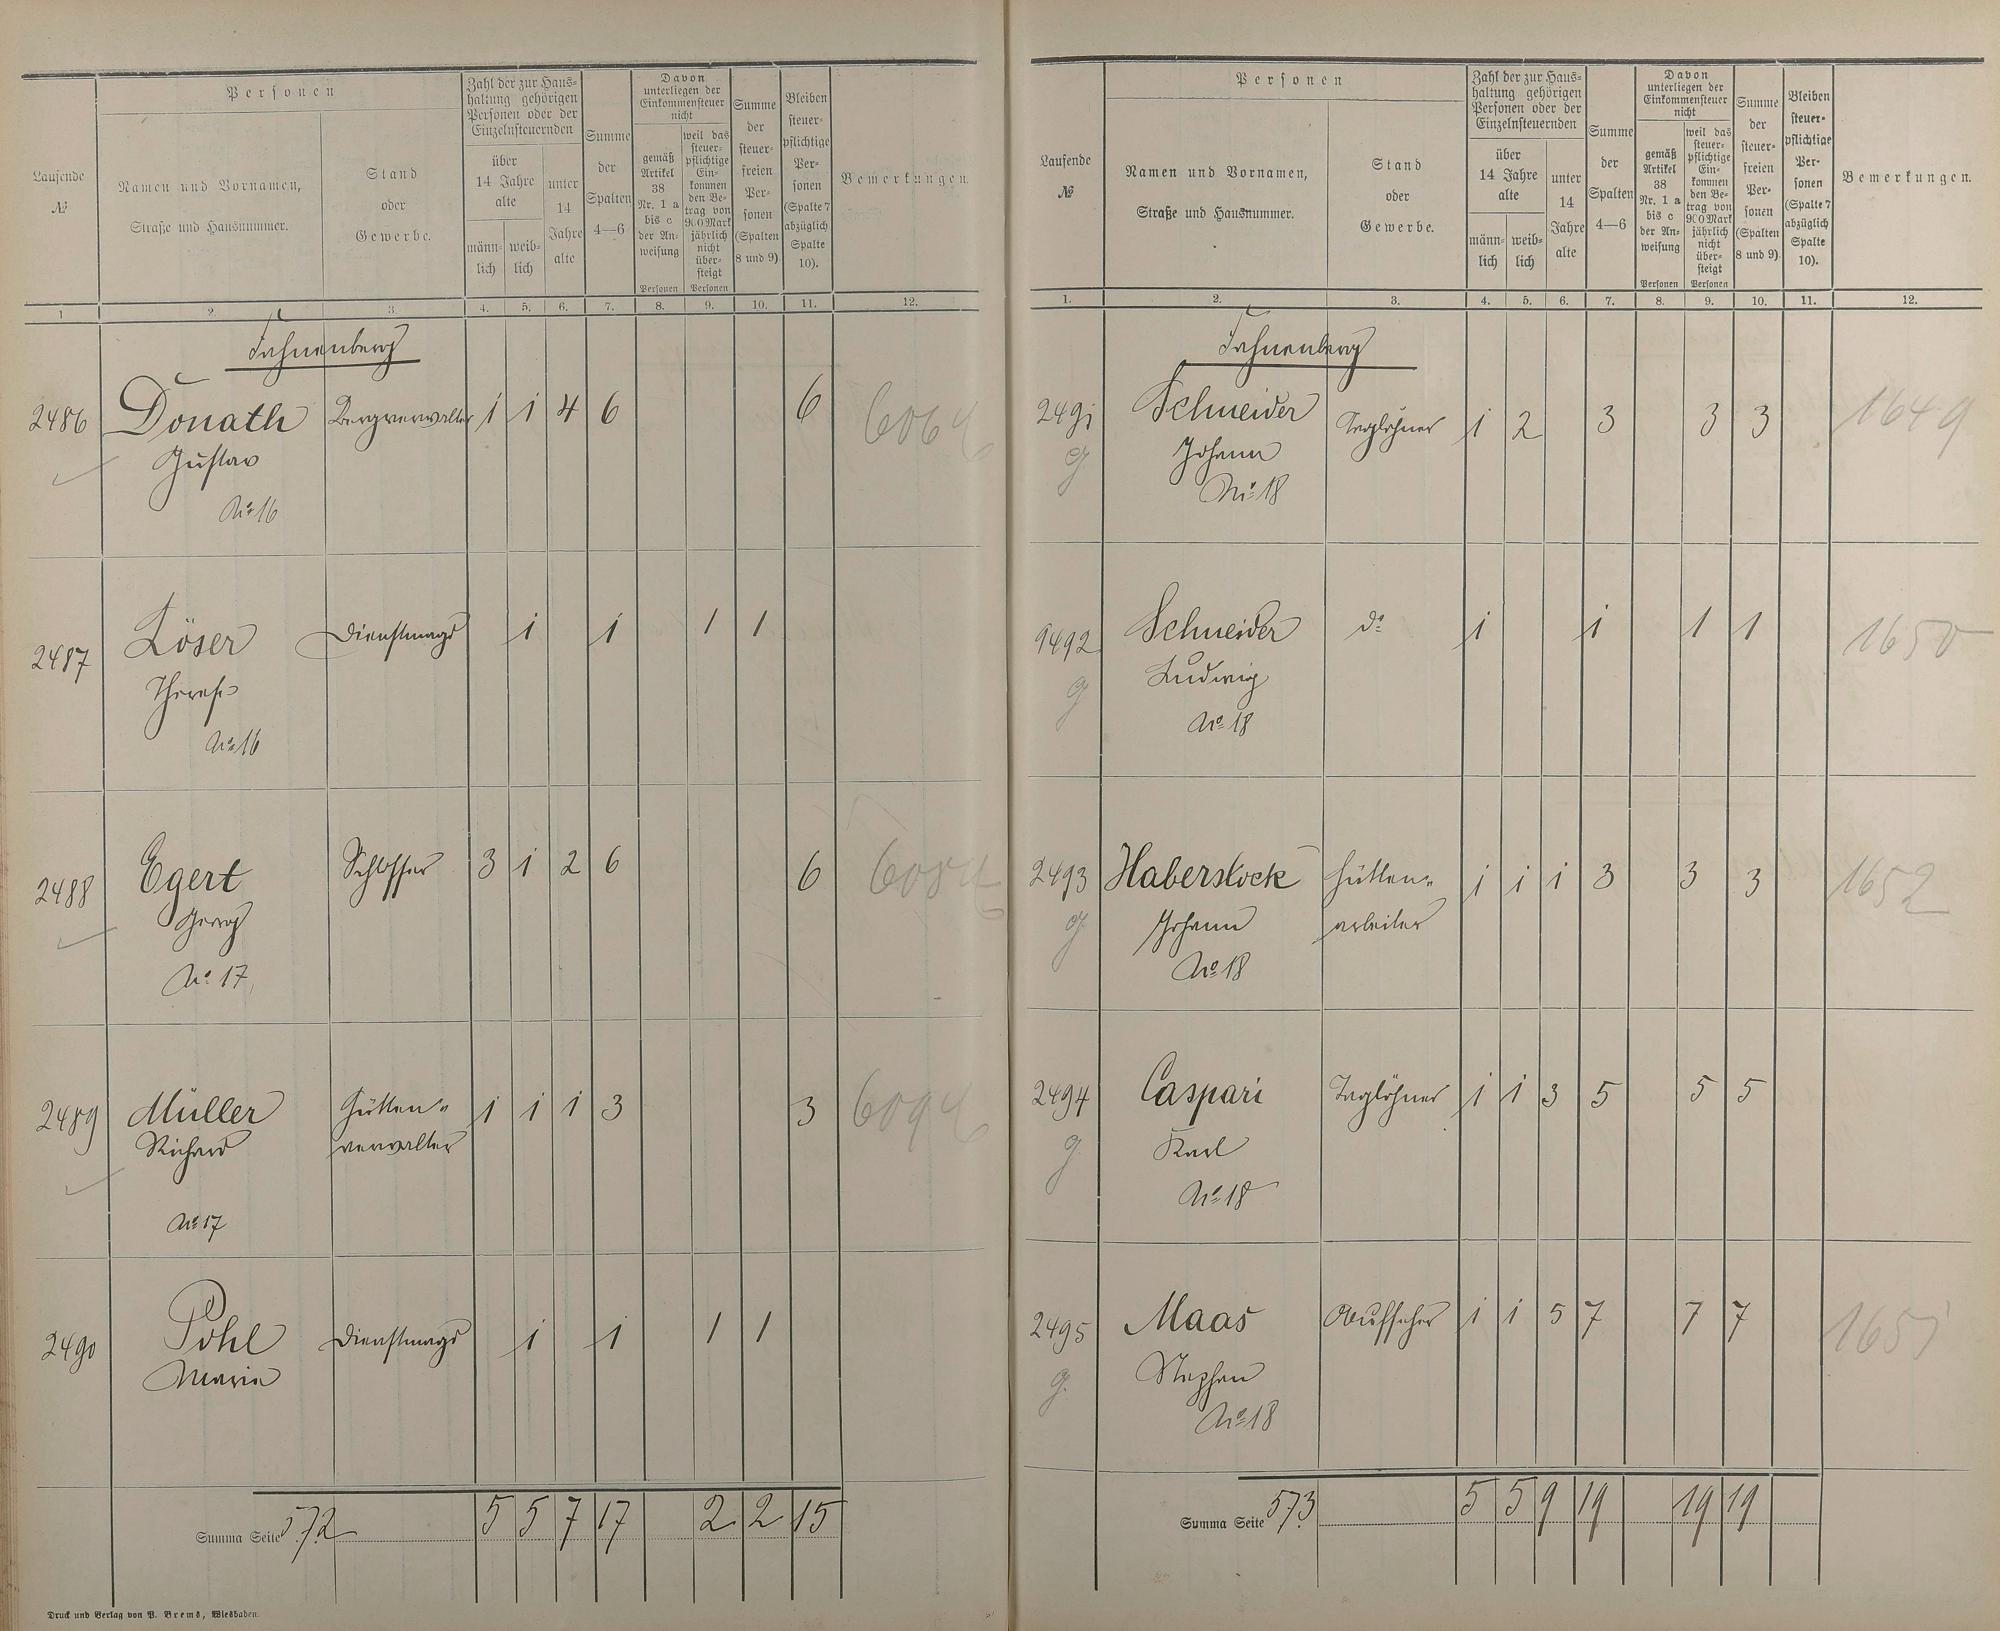 Laufende
№
Personen
Namen und Vornamen,
Straße und Hausnummer.
Stand
oder
Gewerbe.
Zahl der zur Haus-
haltung gehörigen
Personen oder der
Einzelnsteuernden
über
14 Jahre
alte
männ-
lich
weib-
lich
unter
14
Jahre
alte
Summe
der
Spalten
4—6
Davon
unterliegen der
Einkommensteuer
nicht
gemäß
Artikel
38
Nr. 1 a
bis c
der An-
weisung
Personen
weil das
steuer-
pflichtige
Ein-
kommen
den Be-
trag von
900 Mark
jährlich
nicht
über-
steigt
Personen
Summe
der
steuer-
freien
Per-
sonen
(Spalten
8 und 9)
Bleiben
steuer-
pflichtige
Per-
sonen
(Spalte 7
abzüglich
Spalte
10).
Bemerkungen.
1 2. 3. 4. 5. 6. 7. 8. 9. 10. 11. 12.
Fahnenberg
2486 Donath Bergverwalter 1 1 4 6 6 6064
Gustav
No 16
2487 Löser Dienstmagd 1 1 1 1
Therese
No 16
2488 Egert Schlosser 3 1 2 6 6
Georg
No 17
2489 Müller Hütten- 1 1 1 3 3
Richard verwalter
No 17
2490 Pohl Dienstmagd 1 1 1 1
Maria
Summa Seite 572 5 5 7 17 2 2 15
Druck und Verlag von P. Brems, Wiesbaden.
Laufende
№
Personen
Namen und Vornamen,
Straße und Hausnummer.
Stand
oder
Gewerbe.
Zahl der zur Haus-
haltung gehörigen
Personen oder der
Einzelnsteuernden
über
14 Jahre
alte
männ-
lich
weib-
lich
unter
14
Jahre
alte
Summe
der
Spalten
4—6
Davon
unterliegen der
Einkommensteuer
nicht
gemäß
Artikel
38
Nr. 1 a
bis c
der An-
weisung
Personen
weil das
steuer-
pflichtige
Ein-
kommen
den Be-
trag von
900 Mark
jährlich
nicht
über-
steigt
Personen
Summe
der
steuer-
freien
Per-
sonen
(Spalten
8 und 9)
Bleiben
steuer-
pflichtige
Per-
sonen
(Spalte 7
abzüglich
Spalte
10).
Bemerkungen.
1. 2. 3. 4. 5. 6. 7. 8. 9. 10. 11. 12.
Fahnenberg
2491 Schneider Taglöhner 1 2 3 3 3 1649
g Johann
No 18
9492 Schneider do 1 1 1 1 1650
g Ludwig
No 18
2493 Haberstock Hütten- 1 1 1 3 3 3 1652
g Johann arbeiter
No 18
2494 Caspari Taglöhner 1 1 3 5 5 5
g Karl
No 18
2495 Maas Aufseher 1 1 5 7 7 7 1651
g. Stephan
No 18
Summa Seite 573 5 5 9 19 19 19